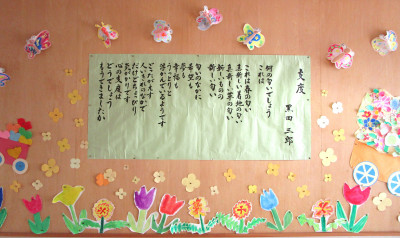 支度
黒田 三郎
何の匂いでしょう
これは
これは春の匂い
真新しい着地の匂い
真新しい革の匂い
新しいものの
新しい匂い
匂いのなかに
希望も
夢も
幸福も
うっとりと
浮かんでいるようです
ごったがえす
人いきれのなかで
だけどちょっぴり
気がかりです
心の支度は
どうでしょう
もうできましたか